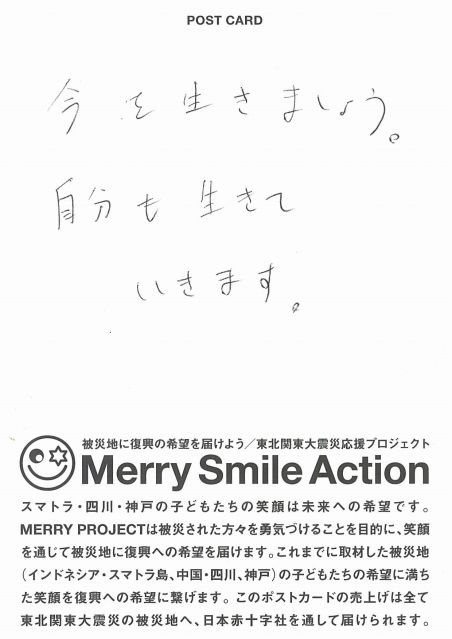 POST CARD
今を生きましょう。
自分も生きて
いきます。
被災地に復興の希望を届けよう／東北関東大震災応援プロジェクト
Merry Smile Action
スマトラ・四川・神戸の子どもたちの笑顔は未来への希望です。
MERRY PROJECTは被災された方々を勇気づけることを目的に、笑顔
を通じて被災地に復興への希望を届けます。これまでに取材した被災地
（インドネシア・スマトラ島、中国・四川、神戸）の子どもたちの希望に満ち
た笑顔を復興への希望に繋げます。このポストカードの売上げは全て
東北関東大震災の被災地へ、日本赤十字社を通して届けられます。